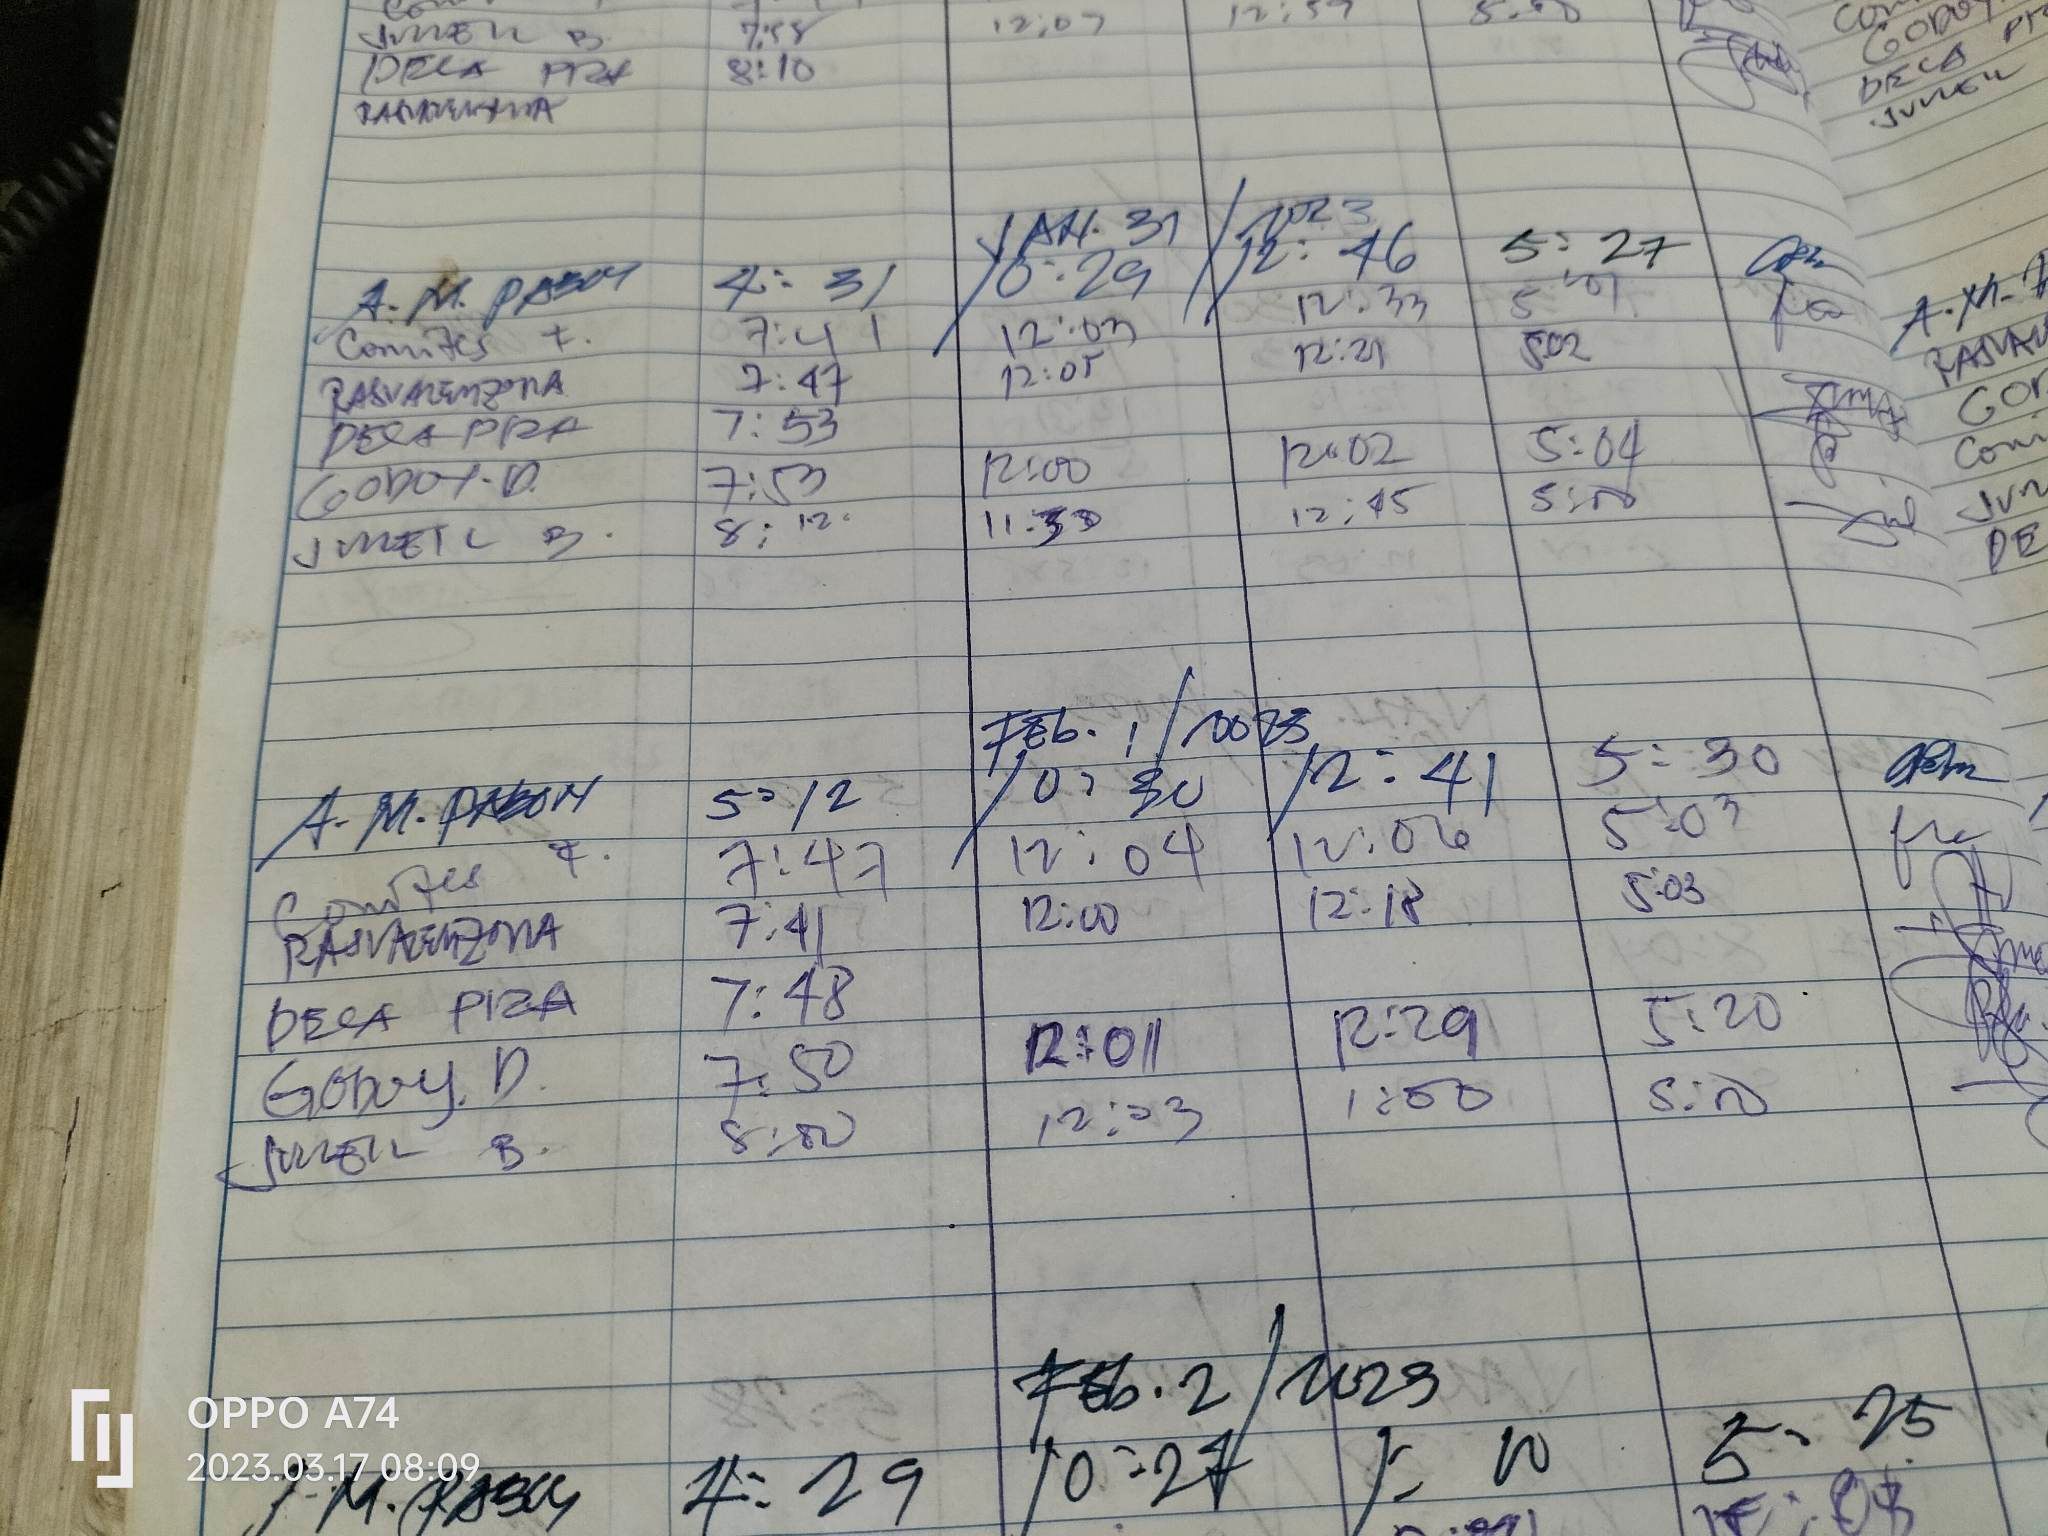 JUNEIL B. 7:58 12:07 12:59 5:00
DECA PIZA 8:10
RASVALENZONA
JAN. 31 / 2023
A. M. PABON 4:31 10:29 12:46 5:27
Comites F. 7:41 12:03 12:33 5:01
RASVALENZONA 7:47 12:05 12:21 5:02
DECA PIZA 7:53
GODOY. D. 7:53 12:00 12:02 5:04
JUNEIL B. 8:12 11:53 12:45 5:00
FEB. 1 / 2023
A. M. PABON 5:12 10:30 12:41 5:30
Comites F. 7:47 12:04 12:06 5:03
RASVALENZONA 7:41 12:00 12:18 5:03
DECA PIZA 7:48
GODOY. D. 7:50 12:01 12:29 5:20
JUNEIL B. 8:00 12:03 1:00 5:00
FEB. 2 / 2023
A. M. PABON 4:29 10:27 1:10 5:25
GODOY
DECA
JUNEIL
A. M.
COMI
JUN
DE
OPPO A74
2023.03.17 08:09